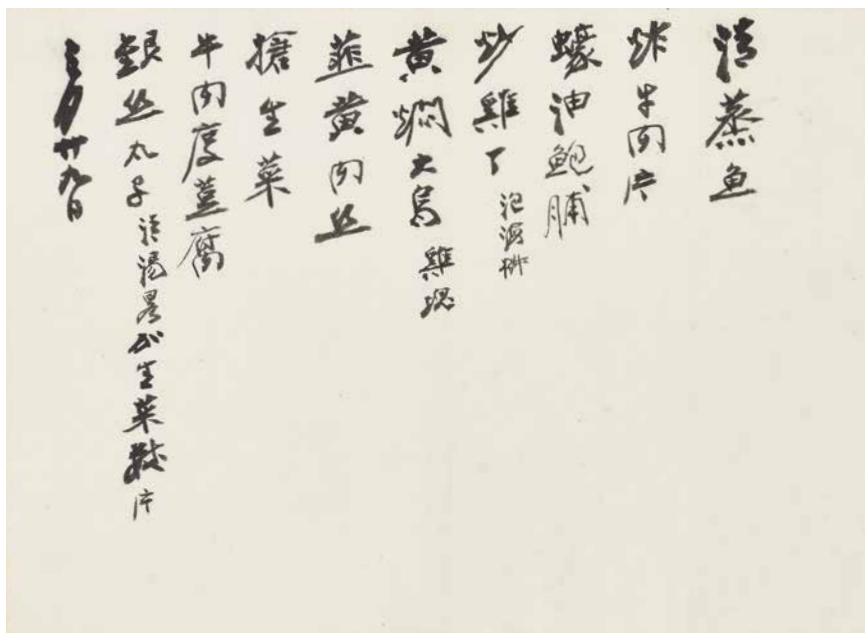 清蒸魚
炸牛肉片
蠔油鮑脯
炒雞丁 泡海椒
黃燜大烏 雞塊
韮黃肉丝
搶生菜
牛肉腐
銀丝丸子 清湯畧下生菜數片
三月廿九日